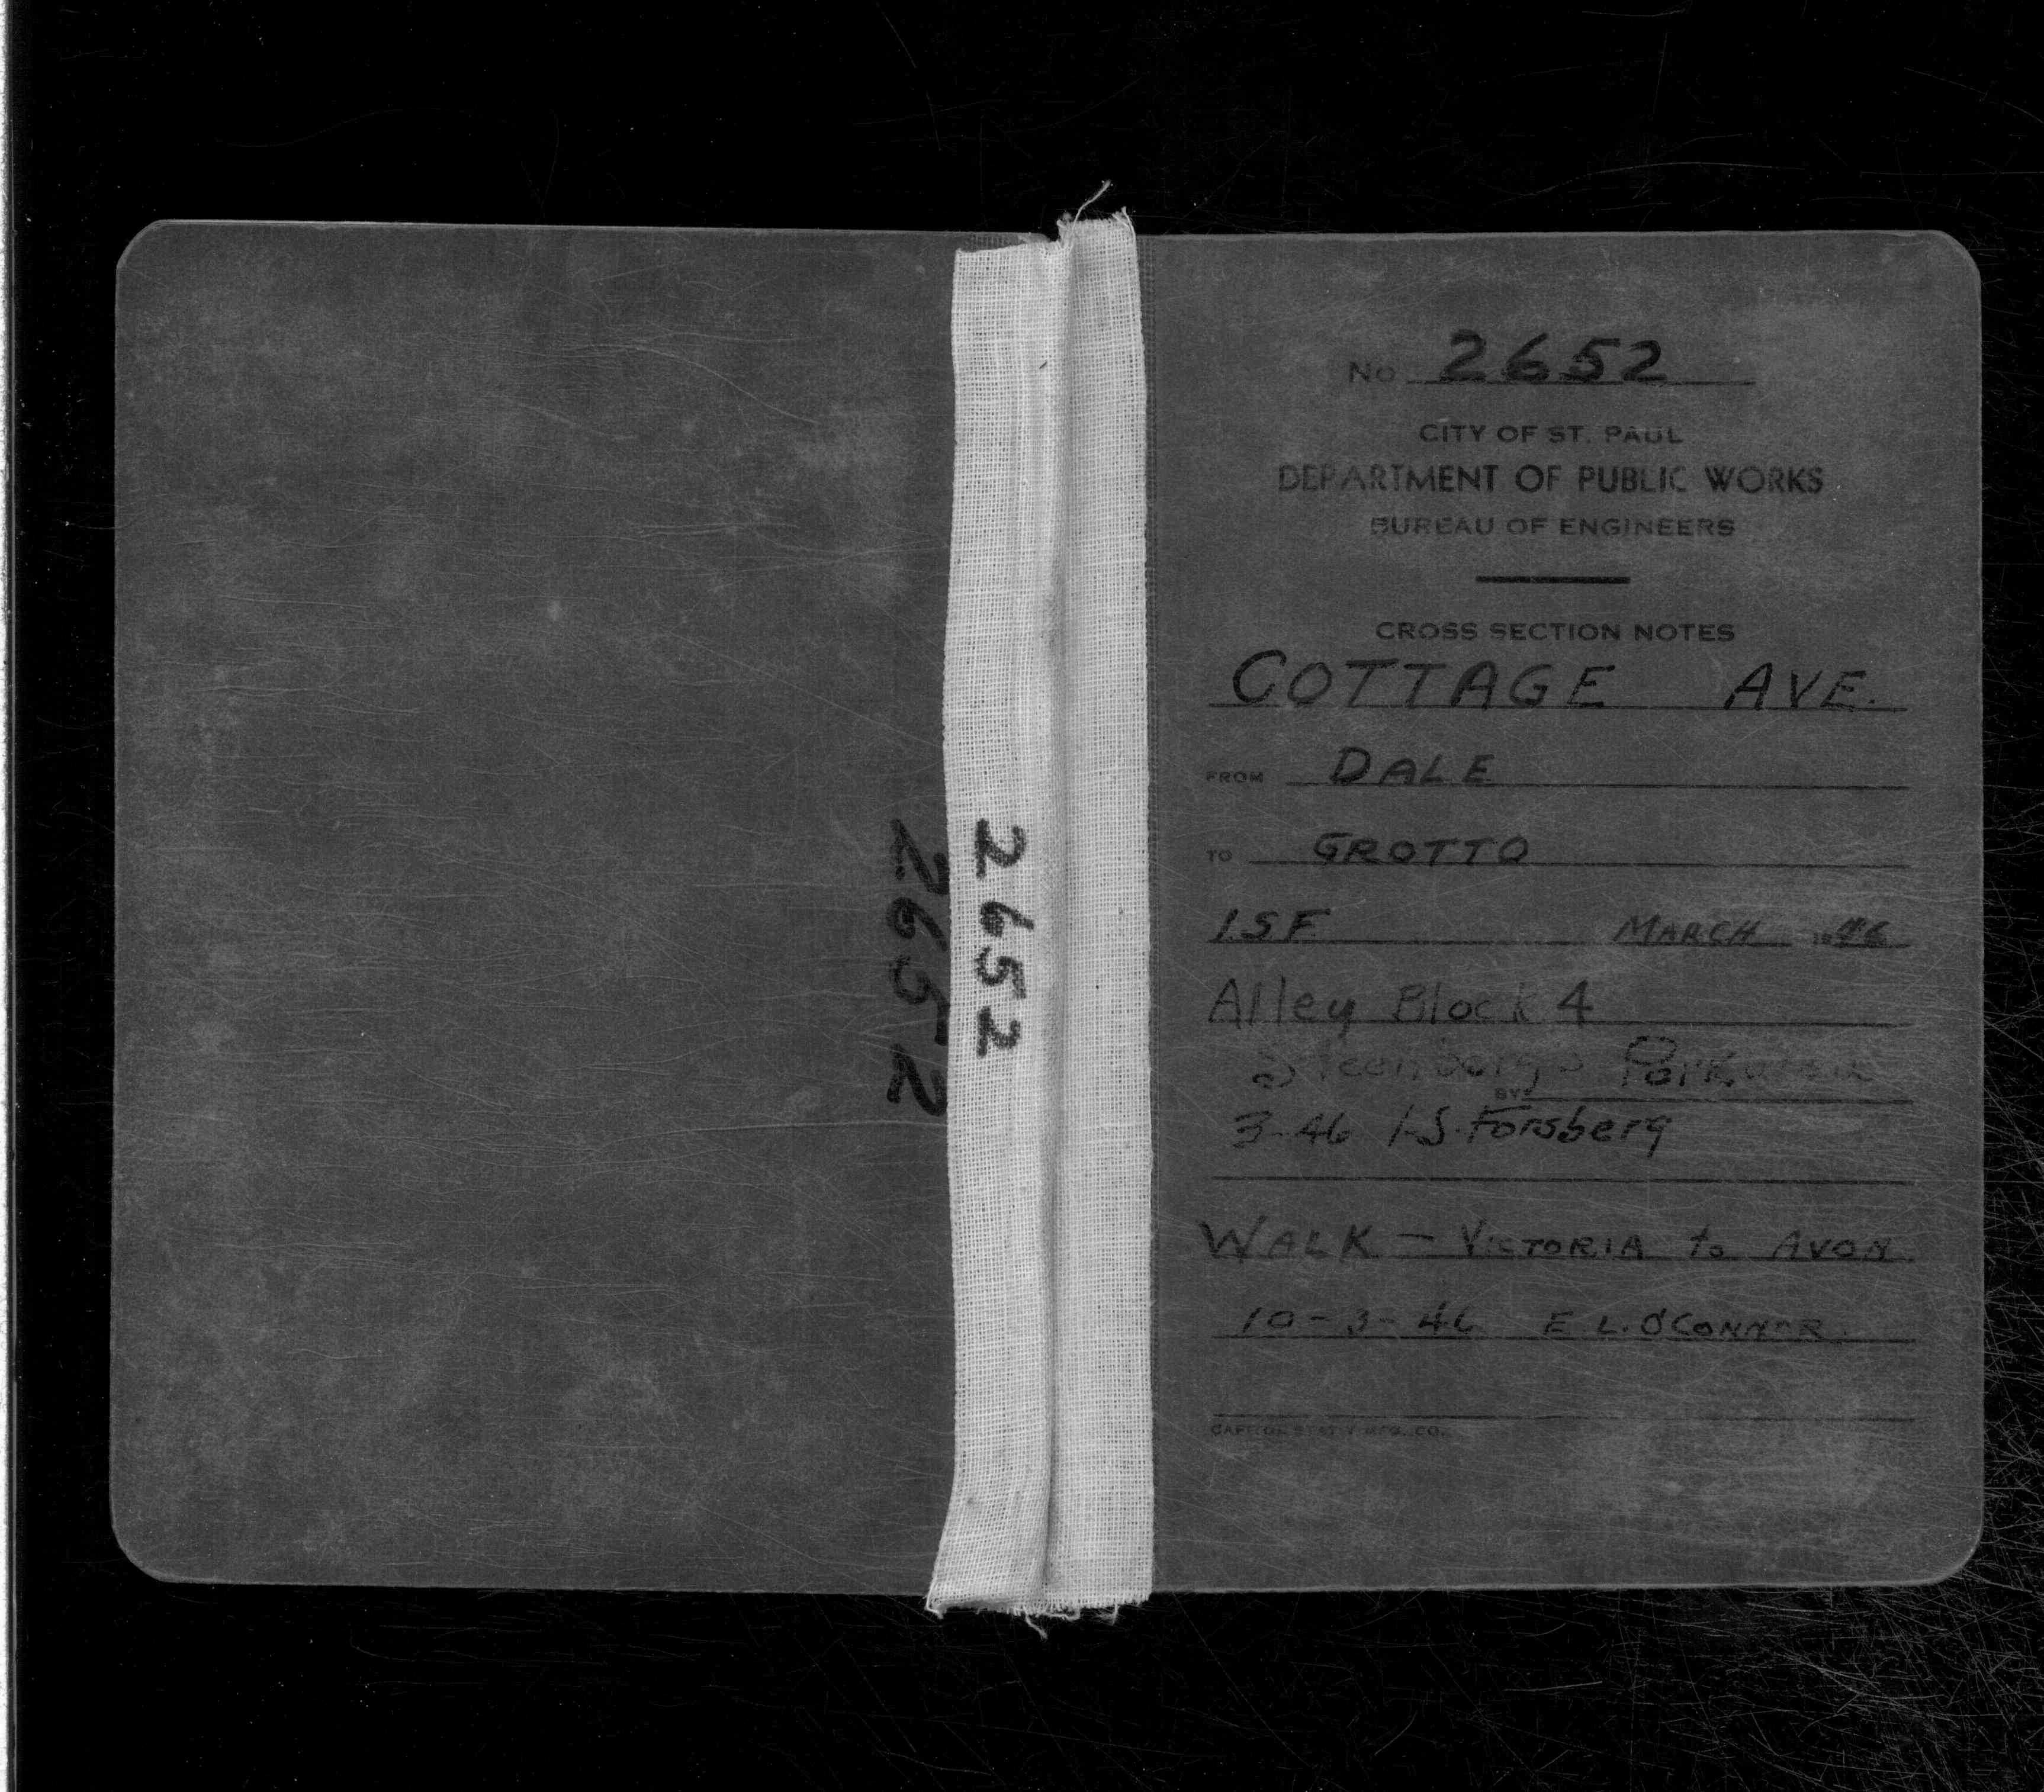 2652
2652
No 2652
CITY OF ST. PAUL
DEPARTMENT OF PUBLIC WORKS
BUREAU OF ENGINEERS
CROSS SECTION NOTES
COTTAGE AVE.
FROM DALE
TO GROTTO
I.S.F. MARCH 1946
Alley Block 4
BY
3-46 I.S. Forsberg
WALK - VICTORIA to AVON
10-3-46 E.L. O'CONNOR.
CAPITOL STAT'Y MFG. CO.